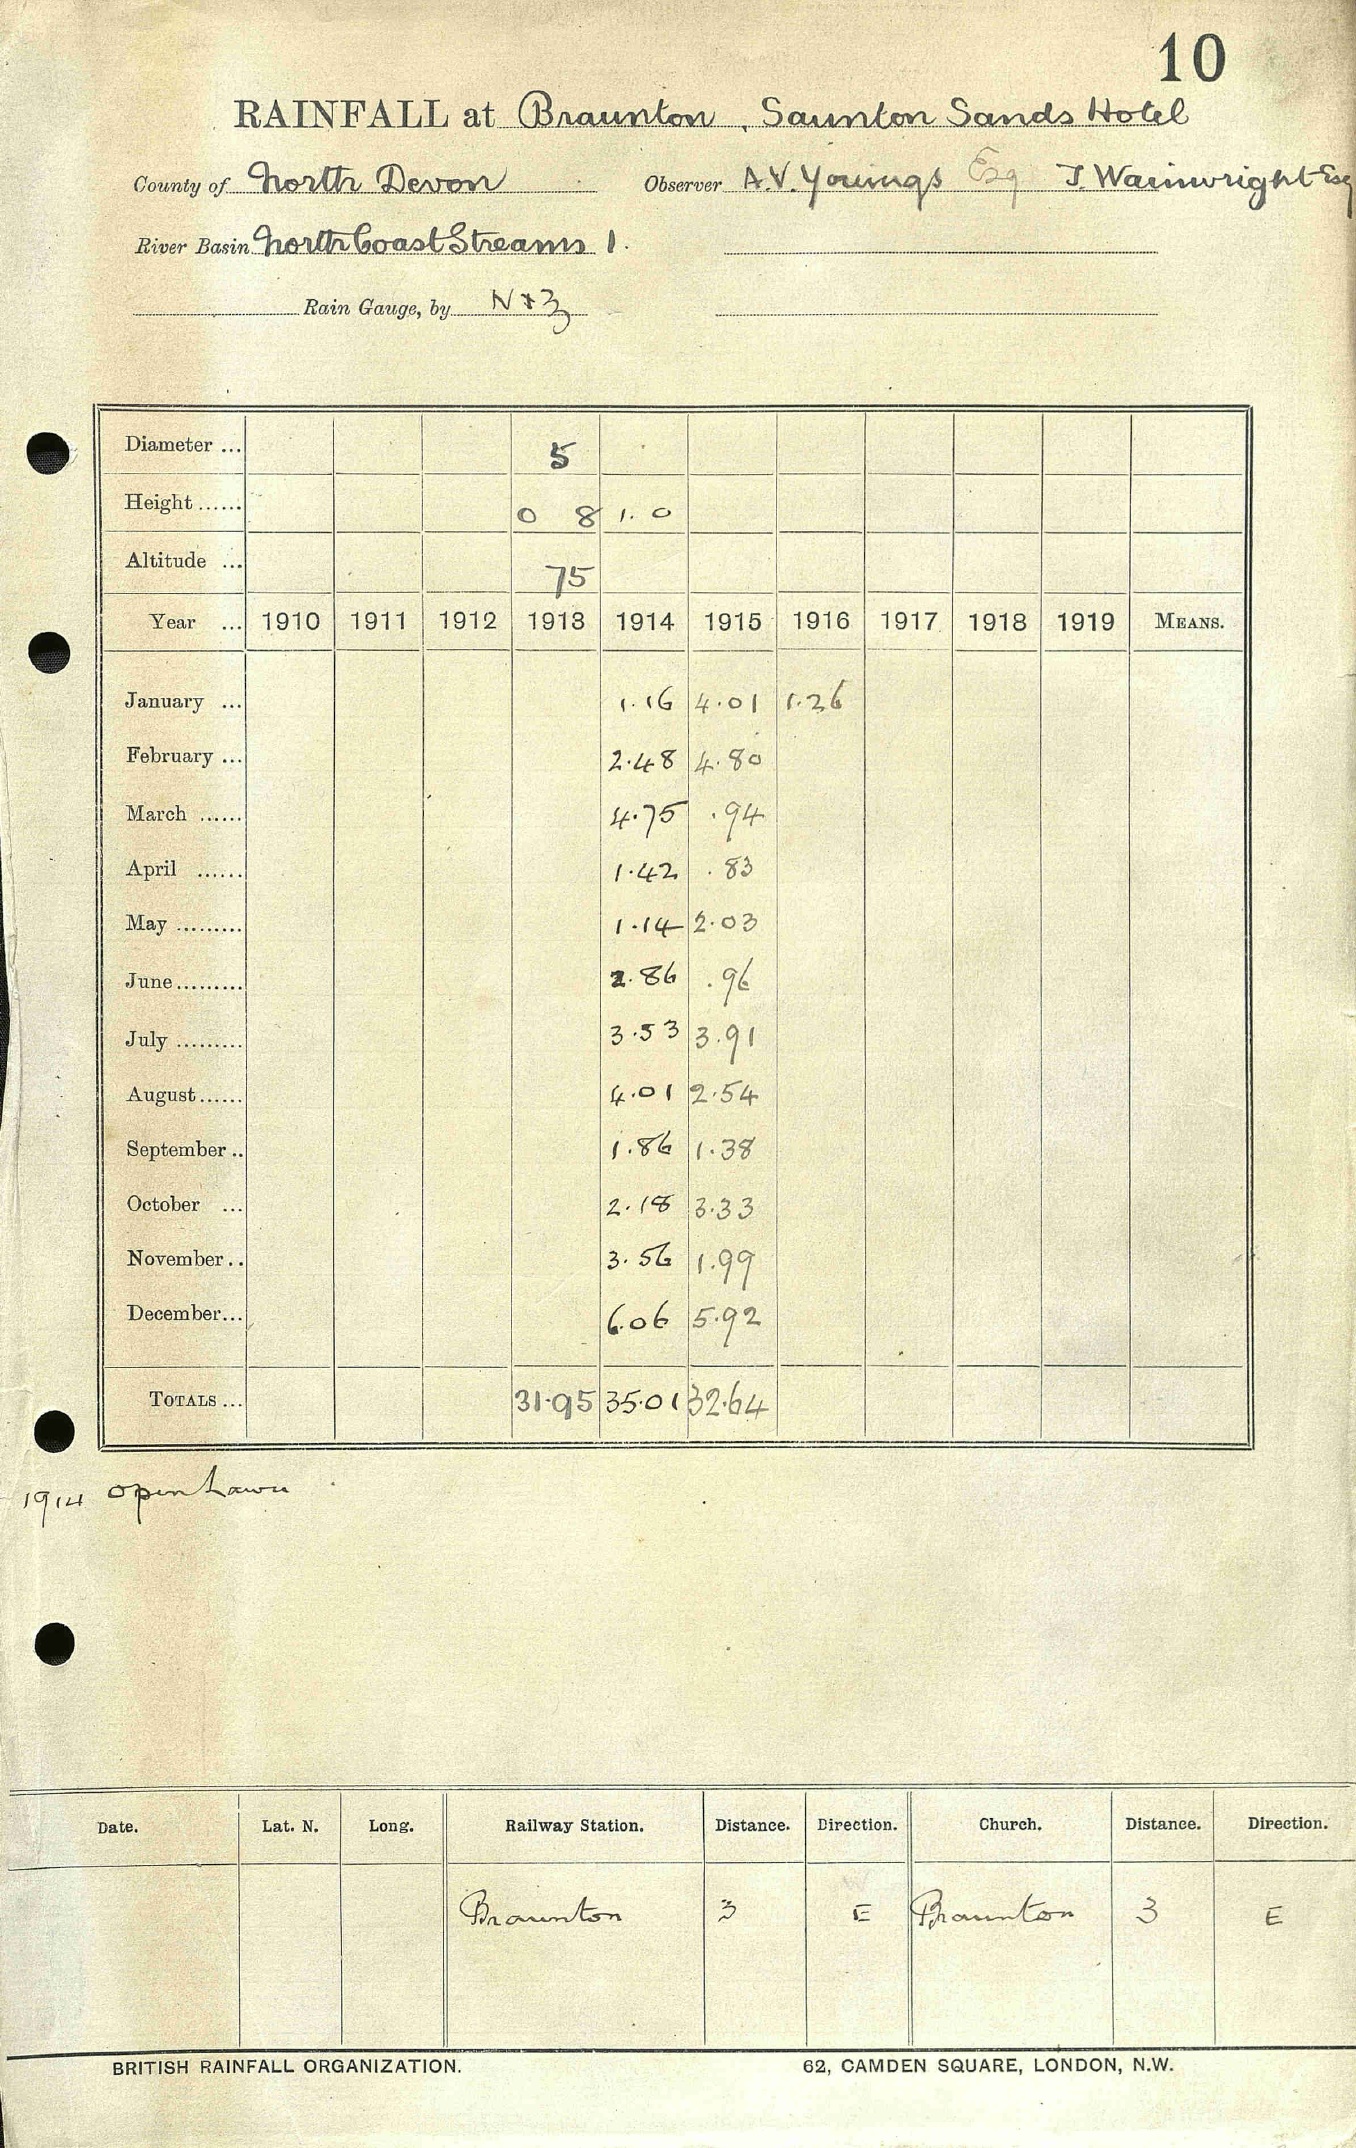 10
RAINFALL at Braunton, Saunton Sands Hotel
County of North Devon Observer A.V. Youings Esq J. Wainwright Esq
River Basin North Coast Streams 1.
Rain Gauge, by N+Z
Diameter ... 5
Height ...... 0 8 1.0
Altitude ... 75
Year ... 1910 1911 1912 1913 1914 1915 1916 1917 1918 1919 MEANS.
January ... 1.16 4.01 1.26
February ... 2.48 4.80
March ...... 4.75 .94
April ...... 1.42 .83
May ......... 1.14 2.03
June ......... 2.86 .96
July ......... 3.53 3.91
August ...... 4.01 2.54
September .. 1.86 1.38
October ... 2.18 3.33
November .. 3.56 1.99
December ... 6.06 5.92
TOTALS ... 31.95 35.01 32.64
1914 open Lawn
Date. Lat. N. Long. Railway Station. Distance. Direction. Church. Distance. Direction.
Braunton 3 E Braunton 3 E
BRITISH RAINFALL ORGANIZATION. 62, CAMDEN SQUARE, LONDON, N.W.